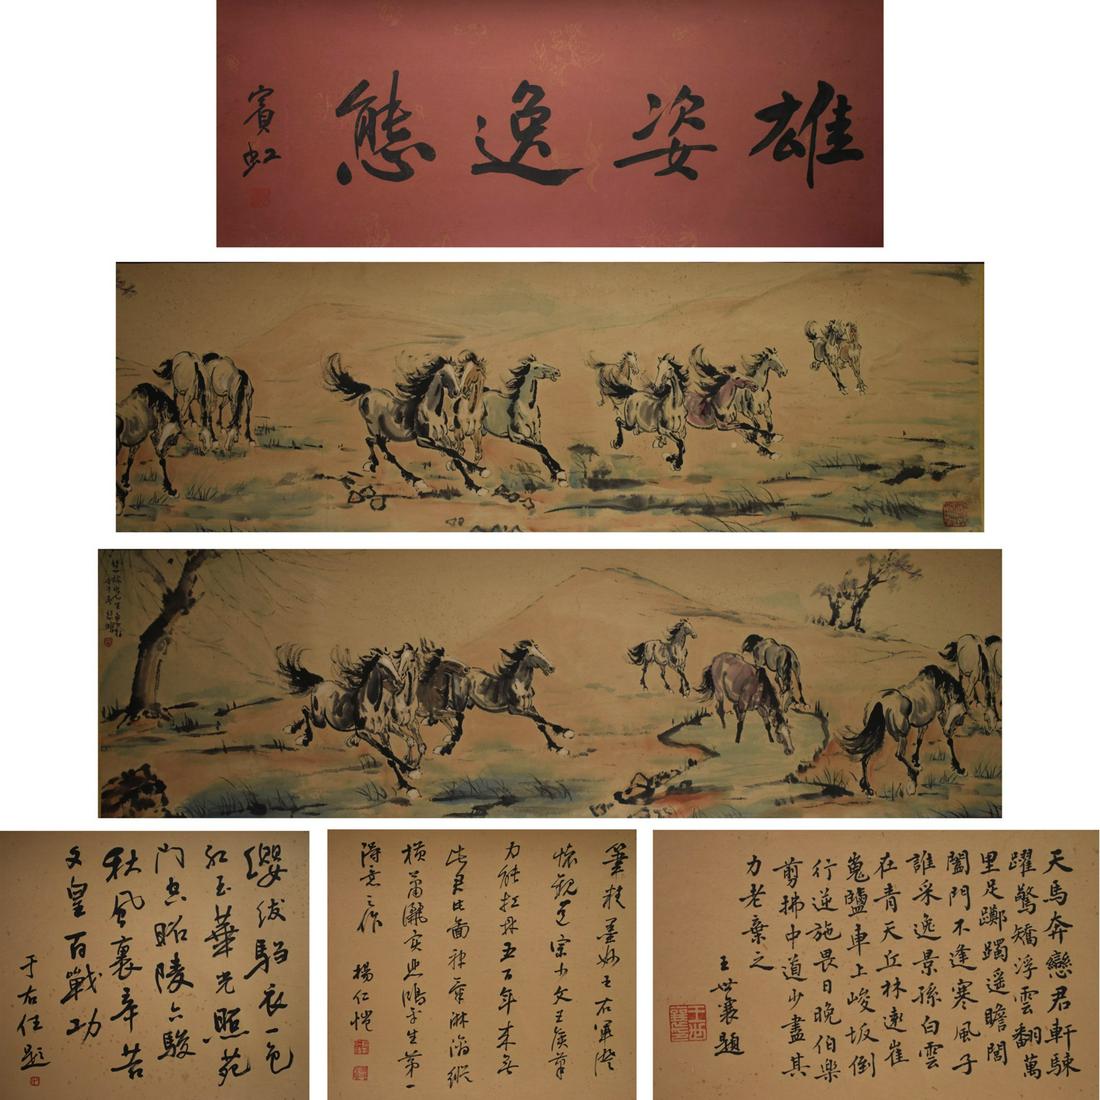 雄姿逸態
賓虹
天馬奔戀君軒駷
躍驚矯浮雲翻萬
里足躑躅遥瞻閶
闔門不逢寒風子
誰采逸景孫白雲
在青天丘林遠崔
嵬鹽車上峻坂倒
行逆施畏日晚伯樂
剪拂中道少盡其
力老棄之
王世襄題
筆精墨妙王右軍澄
懷觀道宗少文王侯筆
力能扛鼎五百年来無
此君此圖神韻淋漓縱
橫蕭灑實悲鴻先生第一
得意之作
楊仁愷
衣一色
紅玉華光照苑
門空昭陵六駿
秋風裏辛苦
文皇百戰功
于右任題